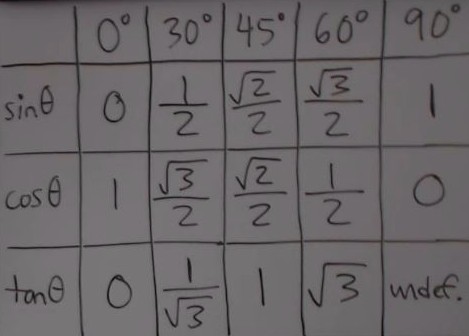 0° 30° 45° 60° 90°
sinθ 0 1/2 √2/2 √3/2 1
cosθ 1 √3/2 √2/2 1/2 0
tanθ 0 1/√3 1 √3 undef.